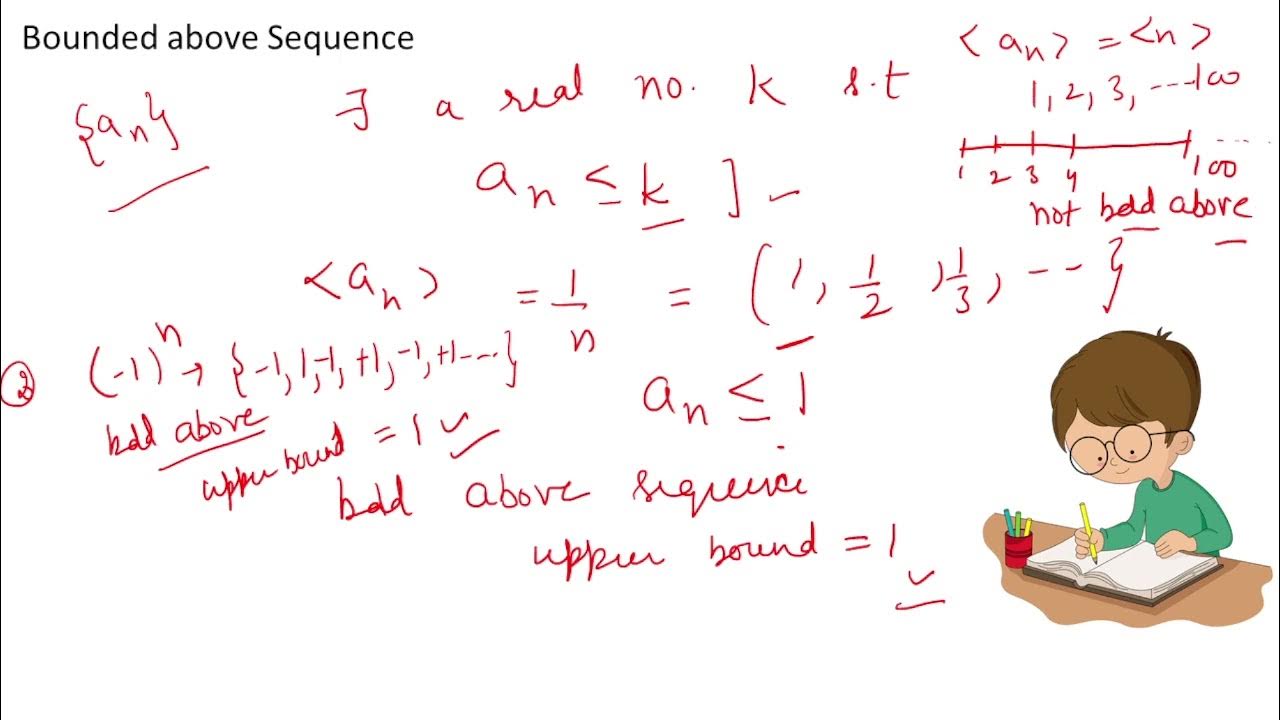 Bounded above Sequence
{aₙ} ∃ a real no. k s.t
aₙ ≤ k ]
<aₙ> = <n>
1, 2, 3, ---100
1 2 3 4 100 ----
not bdd above
<aₙ> = 1/n = (1, 1/2, 1/3, -- -}
② (-1)ⁿ → {-1, 1, -1, +1, -1, +1 ----}
bdd above
upper bound = 1 ✓
aₙ ≤ 1
bdd above sequence
upper bound = 1 ✓